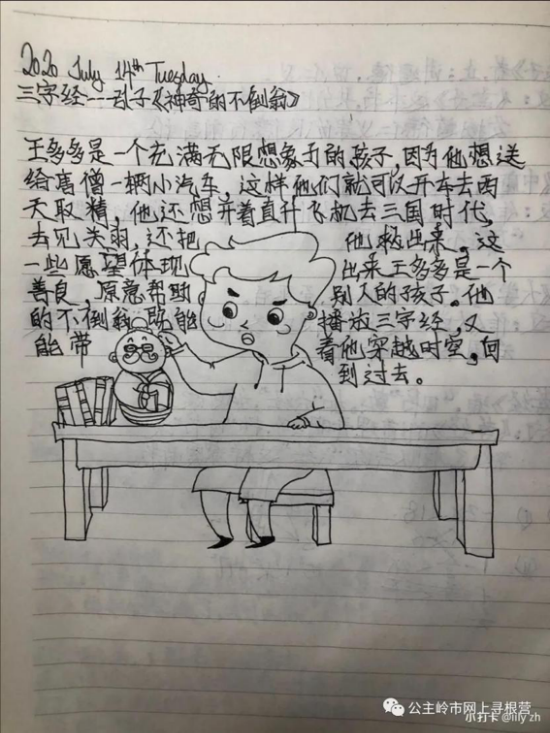 2020 July 14th Tuesday.
三字经--孔子《神奇的不倒翁》
王多多是一个充满无限想象力的孩子,因为他想送
给高僧一辆小汽车,这样他们就可以开车去西
天取精,他还想开着直升飞机去三国时代,
去见关羽,还把 他救出来。这
一些愿望体现 出来王多多是一个
善良,原意帮助 别人的孩子。他
的不倒翁既能 播放三字经,又
能带 着他穿越时空,回
到过去。
公主岭市网上寻根营
小打卡 @lily zh